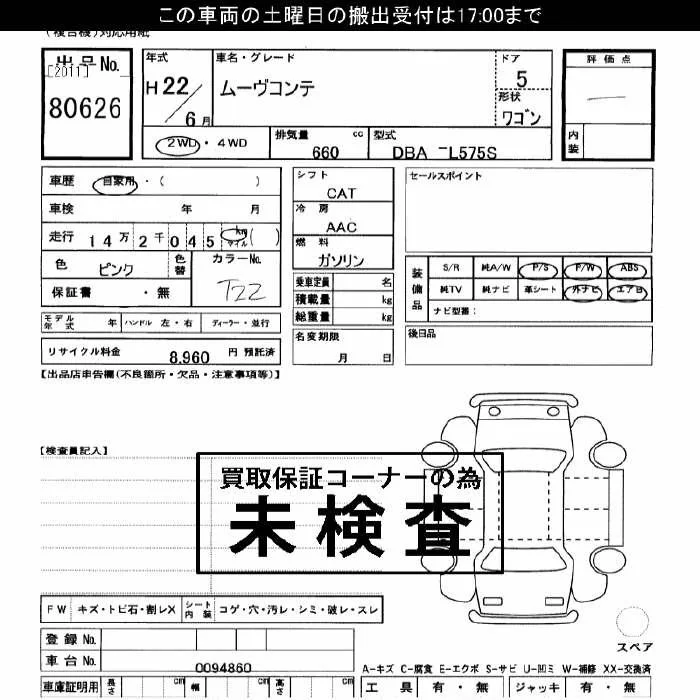 この車両の土曜日の搬出受付は17:00まで
(複合機)対応用紙
出品No.
[2011]
80626
年式
H22/6月
車名・グレード
ムーヴコンテ
ドア
5
形状
ワゴン
評価点
内装
2WD・4WD
排気量 cc
660
型式
DBA-L575S
車歴 自家用・( )
車検 年 月
走行 14万2千045 km マイル ( )
色 ピンク
色替
カラーNo.
T22
保証書 ・無
シフト
CAT
冷房
AAC
燃料
ガソリン
乗車定員 名
積載量 kg
総重量 kg
名変期限
月 日
セールスポイント
装備品
S/R 純A/W P/S P/W ABS
純TV 純ナビ 革シート 外ナビ エアB
ナビ型番:
後日品
モデル年式 年 ハンドル 左・右 ディーラー・並行
リサイクル料金 8,960 円 預託済
【出品店申告欄(不良箇所・欠品・注意事項等)】
【検査員記入】
買取保証コーナーの為
未検査
FW キズ・トビ石・割レX シート内装 コゲ・穴・汚レ・シミ・破レ・スレ
登録No.
車台No. 0094860
スペア
A-キズ C-腐食 E-エクボ S-サビ U-凹ミ W-補修 XX-交換済
車庫証明用 長さ cm 幅 cm 高さ cm
工具 有・無 ジャッキ 有・無